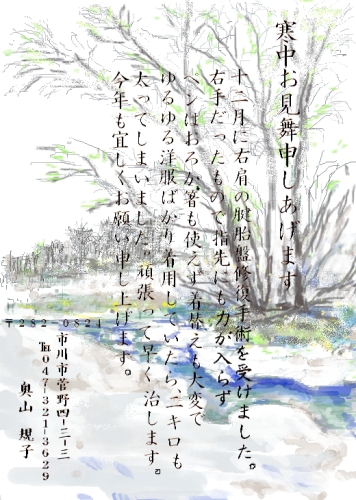 寒中お見舞申しあげます
十二月に右肩の腱胎盤修復手術を受けました。
右手だったもので指先にも力が入らず
ペンはおろか箸も使えず着替えも大変で
ゆるゆる洋服ばかり着用していたら、二キロも
太ってしまいました。頑張って早く治します。
今年も宜しくお願い申し上げます。
〒282-0824
市川市菅野四-三-三
℡047-321-3629
奥山 規子